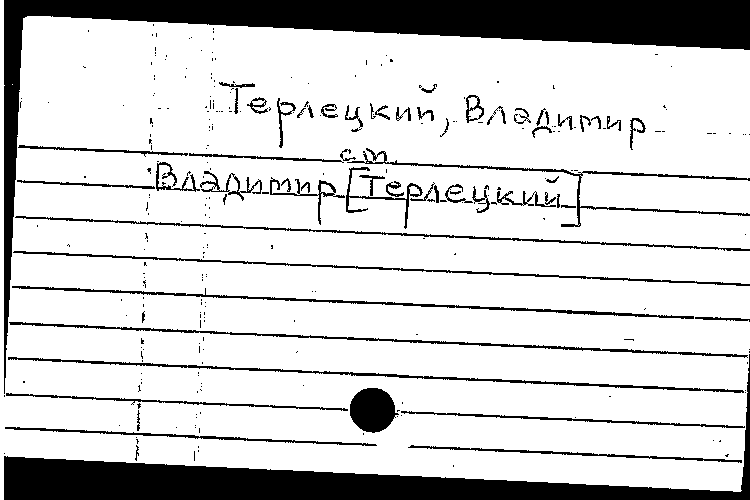 Терлецкий, Владимир
ст.
Владимир [Терлецкий]